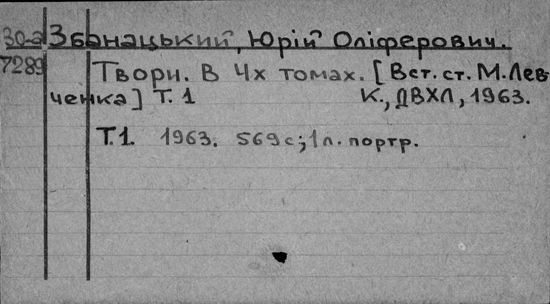 30-а Збанацький, Юрій Оліферович.
7289 Твори. В 4х томах. [Вст. ст. М. Лев-
ченка] Т. 1 К., ДВХЛ, 1963.
Т.1. 1963. 569 с; 1 л. портр.